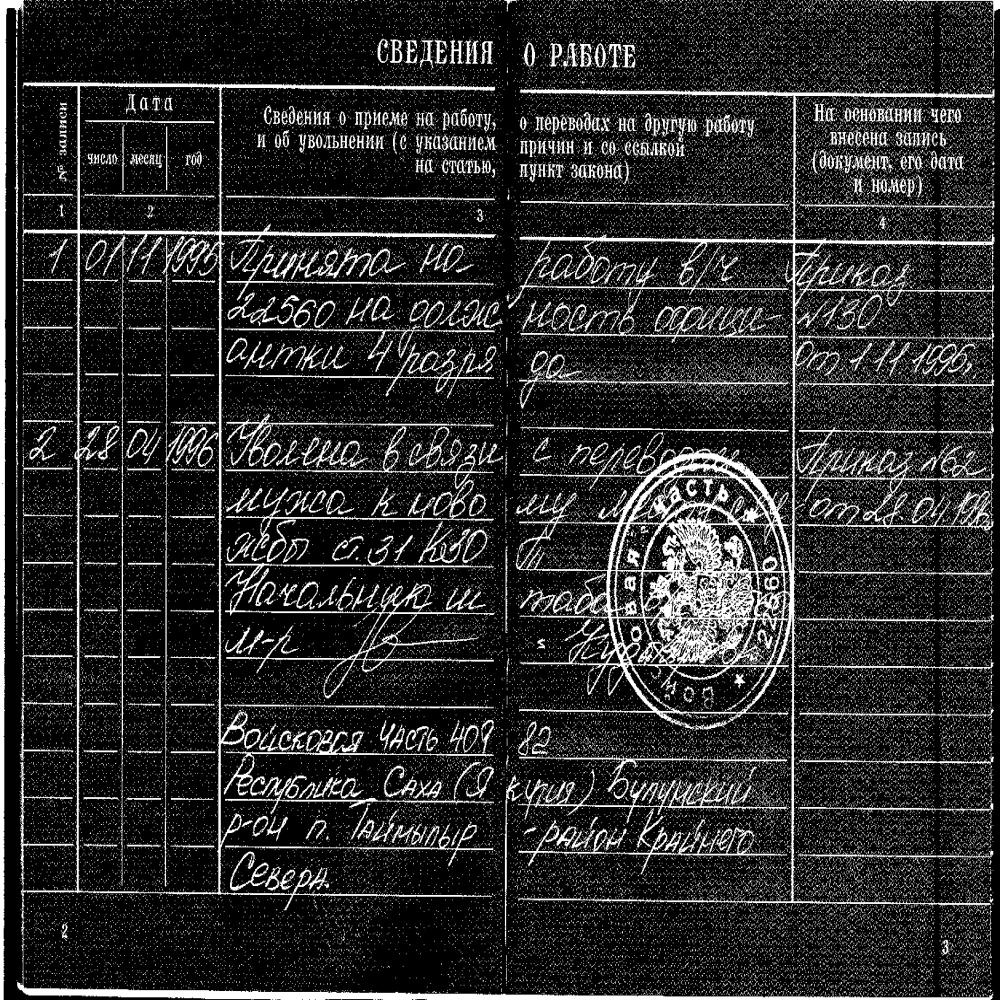 СВЕДЕНИЯ О РАБОТЕ
№ записи
Дата
число месяц год
Сведения о приеме на работу, о переводах на другую работу
и об увольнении (с указанием причин и со ссылкой
на статью, пункт закона)
На основании чего
внесена запись
(документ, его дата
и номер)
1 2 3 4
1 01 11 1995 Принята на работу в/ч Приказ
22560 на должность официн- №130
антки 4 разряда от 1.11.1995.
2 28 04 1996 Уволена в связи с переводом Приказ №62
мужа к новому от 28.04.1996
жбы ст.31 КЗО Т
Начальник штаба
м-р
ВОЙСКОВАЯ ЧАСТЬ 22560
Войсковая часть 40982
Республика Саха (Якутия) Булунский
р-он п. Таймылыр - район Крайнего
Севера.
2
3